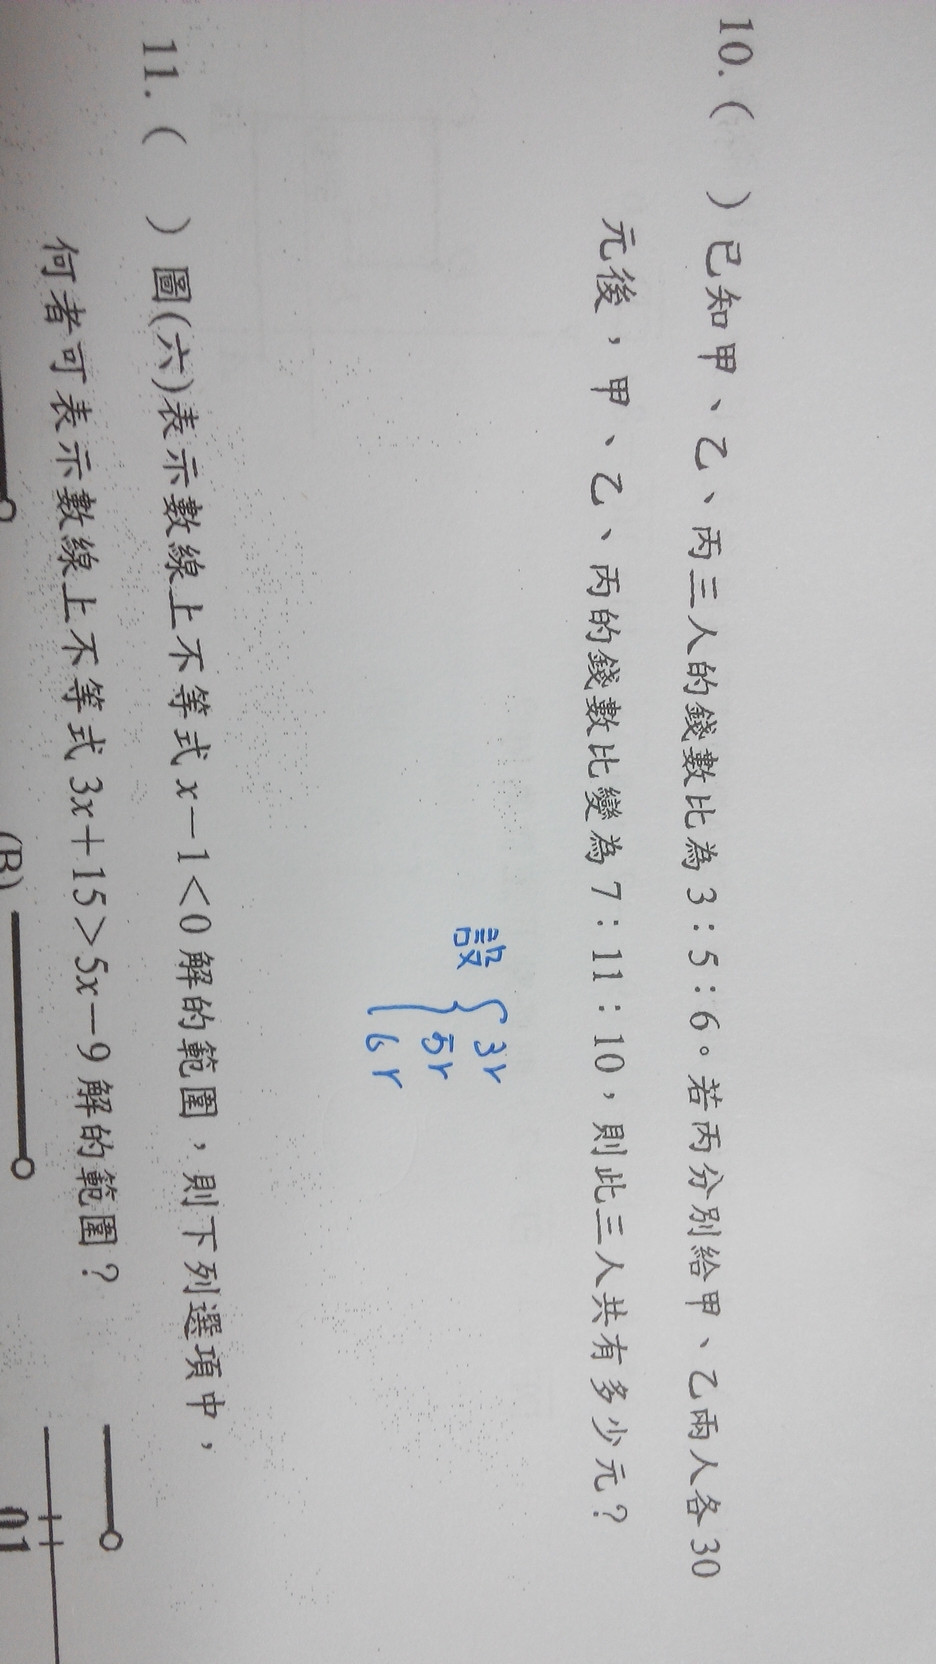 10. (　) 已知甲、乙、丙三人的錢數比為 3：5：6。若丙分別給甲、乙兩人各 30
元後，甲、乙、丙的錢數比變為 7：11：10，則此三人共有多少元？
設 { 3r
5r
6r
11. (　) 圖(六)表示數線上不等式 x－1＜0 解的範圍，則下列選項中，
何者可表示數線上不等式 3x＋15＞5x－9 解的範圍？
01
(B)